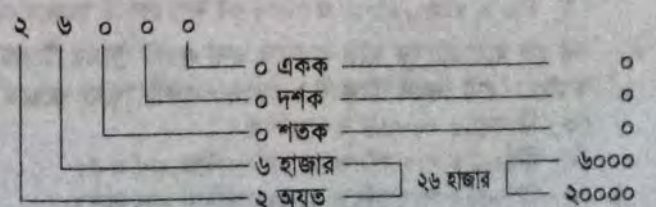 ২ ৬ ০ ০ ০
০ একক ০
০ দশক ০
০ শতক ০
৬ হাজার ৬০০০
২৬ হাজার
২ অযত ২০০০০